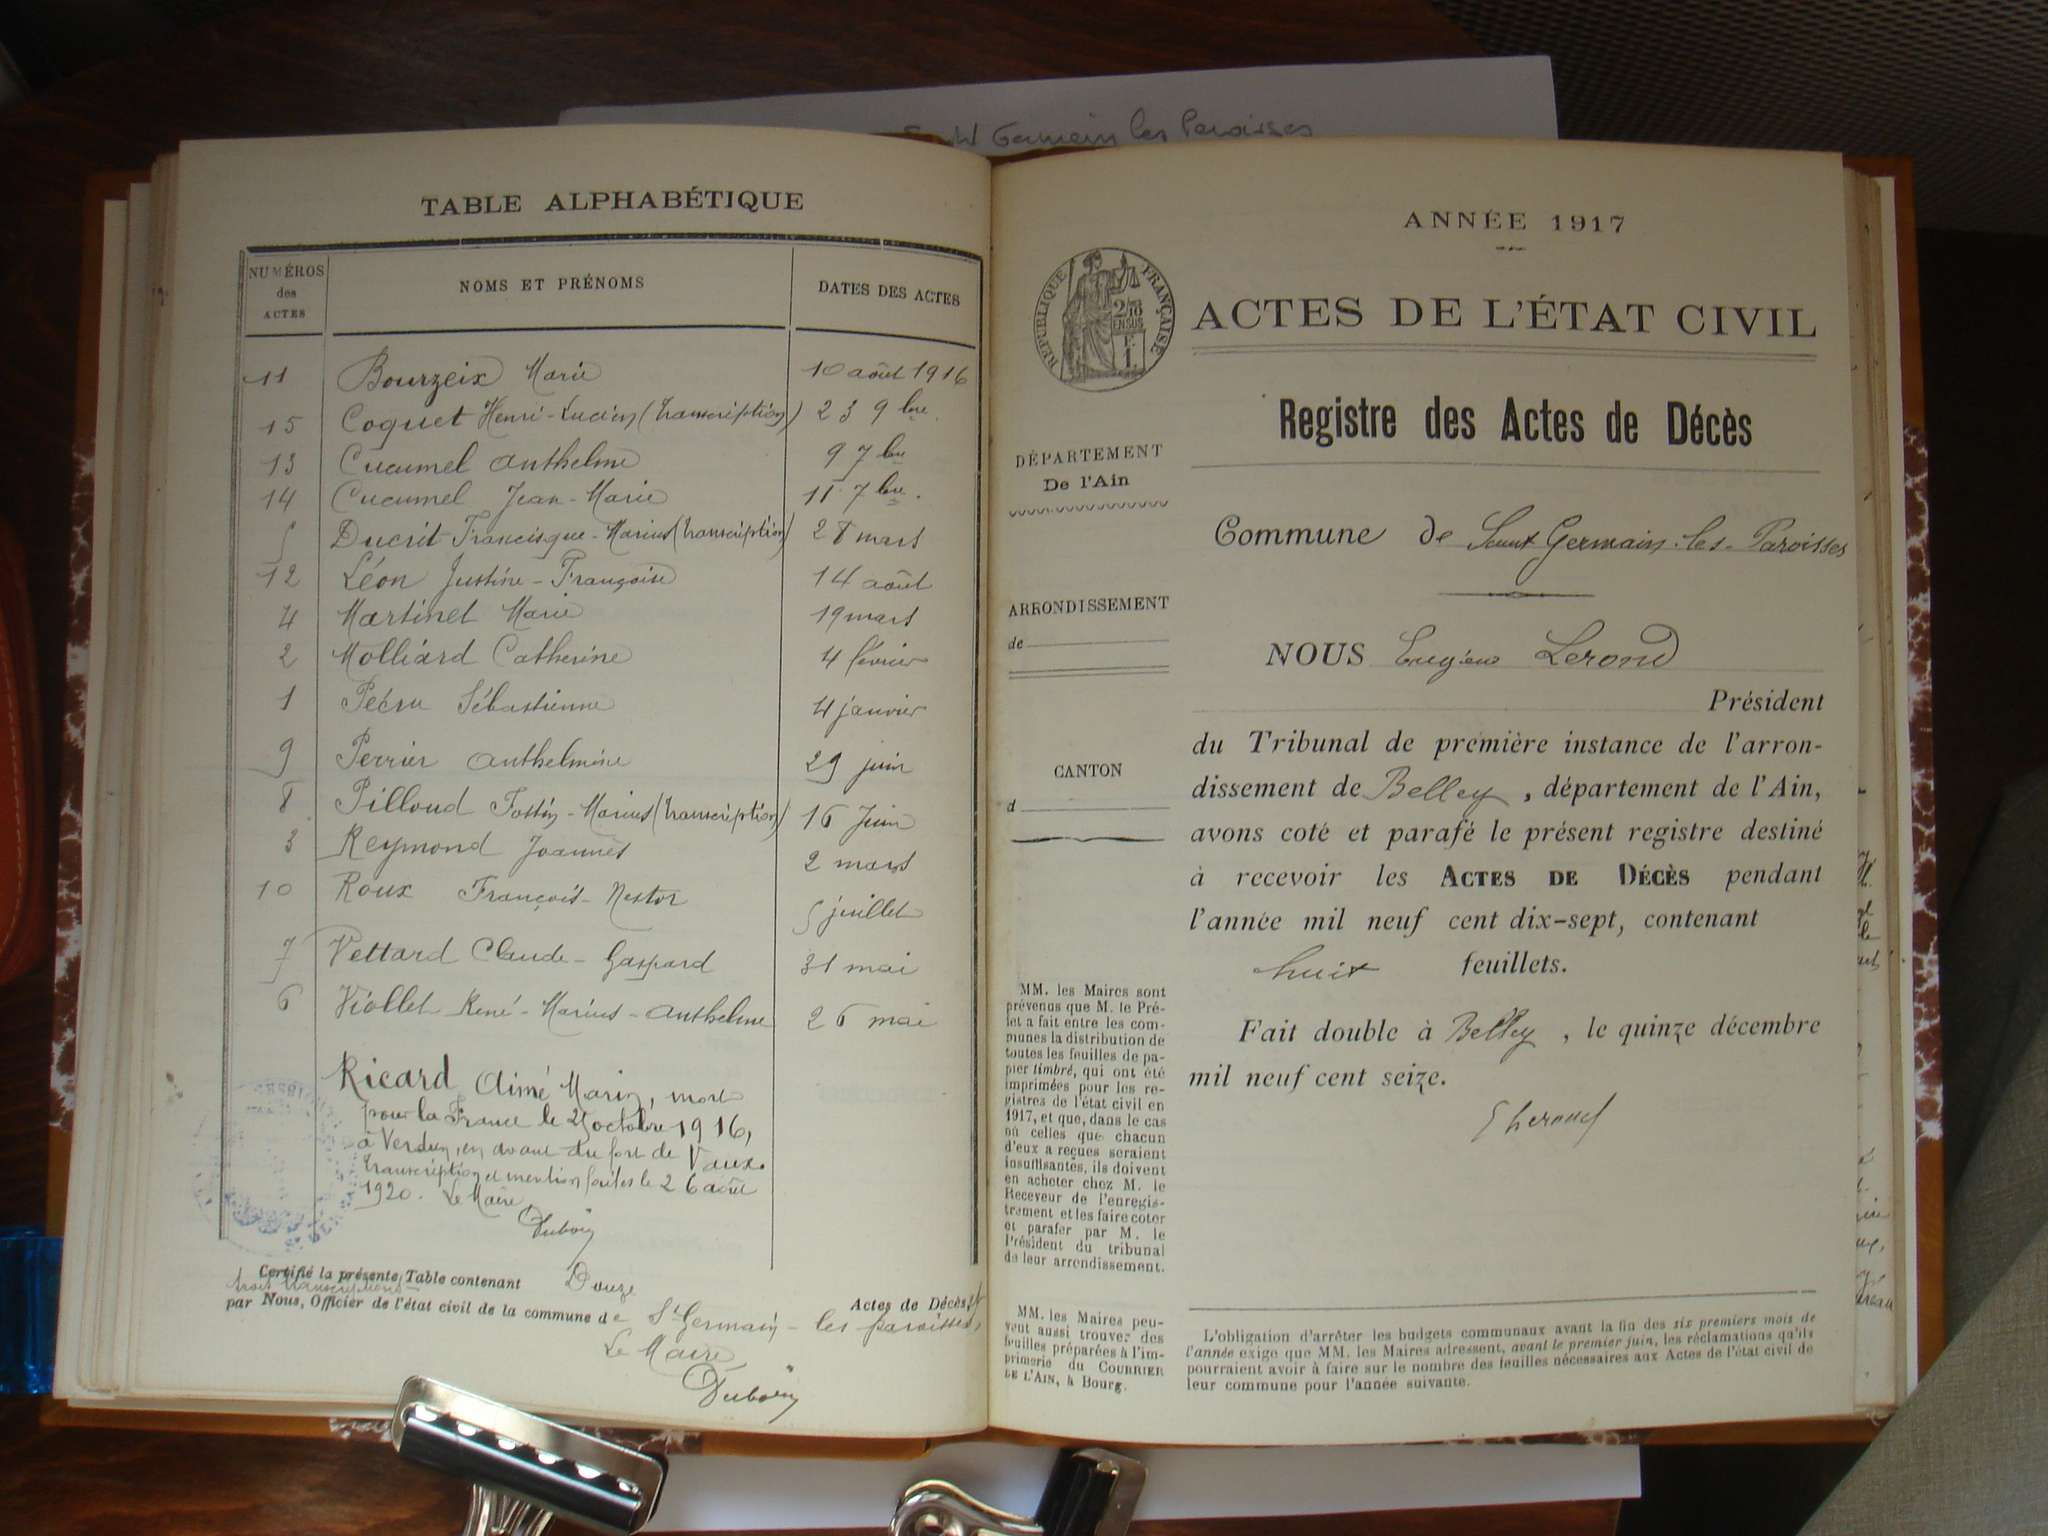 Saint Germain les Paroisses
TABLE ALPHABÉTIQUE
NUMÉROS des ACTES
NOMS ET PRÉNOMS
DATES DES ACTES
11 Bourzeix Marie 10 août 1916
15 Coquet Henri-Lucien (transcription) 23 9bre.
13 Cucumel Anthelme 9 7bre
14 Cucumel Jean-Marie 11 7bre.
5 Ducrit Francisque-Marius (transcription) 28 mars
12 Léon Justine-Françoise 14 août
4 Martinet Marie 19 mars
2 Molliard Catherine 4 février
1 Pécru Sébastienne 4 janvier
9 Perrier Anthelmine 29 juin
8 Pilloud Marius (transcription) 16 Juin
3 Reymond Joannès 2 mars
10 Roux François-Nestor 5 juillet
7 Vettard Claude-Gaspard 31 mai
6 Viollet René-Marius-Anthelme 26 mai
Ricard Aimé Marin, mort
pour la France le 25 octobre 1916,
à Verdun, en avant du fort de Vaux.
Transcription et mention faites le 26 août
1920. Le Maire
Duboin
Certifié la présente Table contenant Douze Actes de Décès, et
trois transcriptions
par Nous, Officier de l'état civil de la commune de St Germain-les paroisses,
Le Maire
Duboin
ANNÉE 1917
RÉPUBLIQUE FRANÇAISE
2/10 EN SUS
ACTES DE L'ÉTAT CIVIL
Registre des Actes de Décès
DÉPARTEMENT
De l'Ain
Commune de Saint Germain-les-Paroisses
ARRONDISSEMENT
de
NOUS Eugène Lerond
Président
du Tribunal de première instance de l'arron-
dissement de Belley, département de l'Ain,
avons coté et parafé le présent registre destiné
à recevoir les ACTES DE DÉCÈS pendant
l'année mil neuf cent dix-sept, contenant
huit feuillets.
Fait double à Belley, le quinze décembre
mil neuf cent seize.
E Lerond
CANTON
d
MM. les Maires sont
prévenus que M. le Pré-
fet a fait entre les com-
munes la distribution de
toutes les feuilles de pa-
pier timbré, qui ont été
imprimées pour les re-
gistres de l'état civil en
1917, et que, dans le cas
où celles que chacun
d'eux a reçues seraient
insuffisantes, ils doivent
en acheter chez M. le
Receveur de l'enregis-
trement et les faire coter
et parafer par M. le
Président du tribunal
de leur arrondissement.
MM. les Maires peu-
vent aussi trouver des
feuilles préparées à l'im-
primerie du COURRIER
DE L'AIN, à Bourg.
L'obligation d'arrêter les budgets communaux avant la fin des six premiers mois de
l'année exige que MM. les Maires adressent, avant le premier juin, les réclamations qu'ils
pourraient avoir à faire sur le nombre des feuilles nécessaires aux Actes de l'état civil de
leur commune pour l'année suivante.